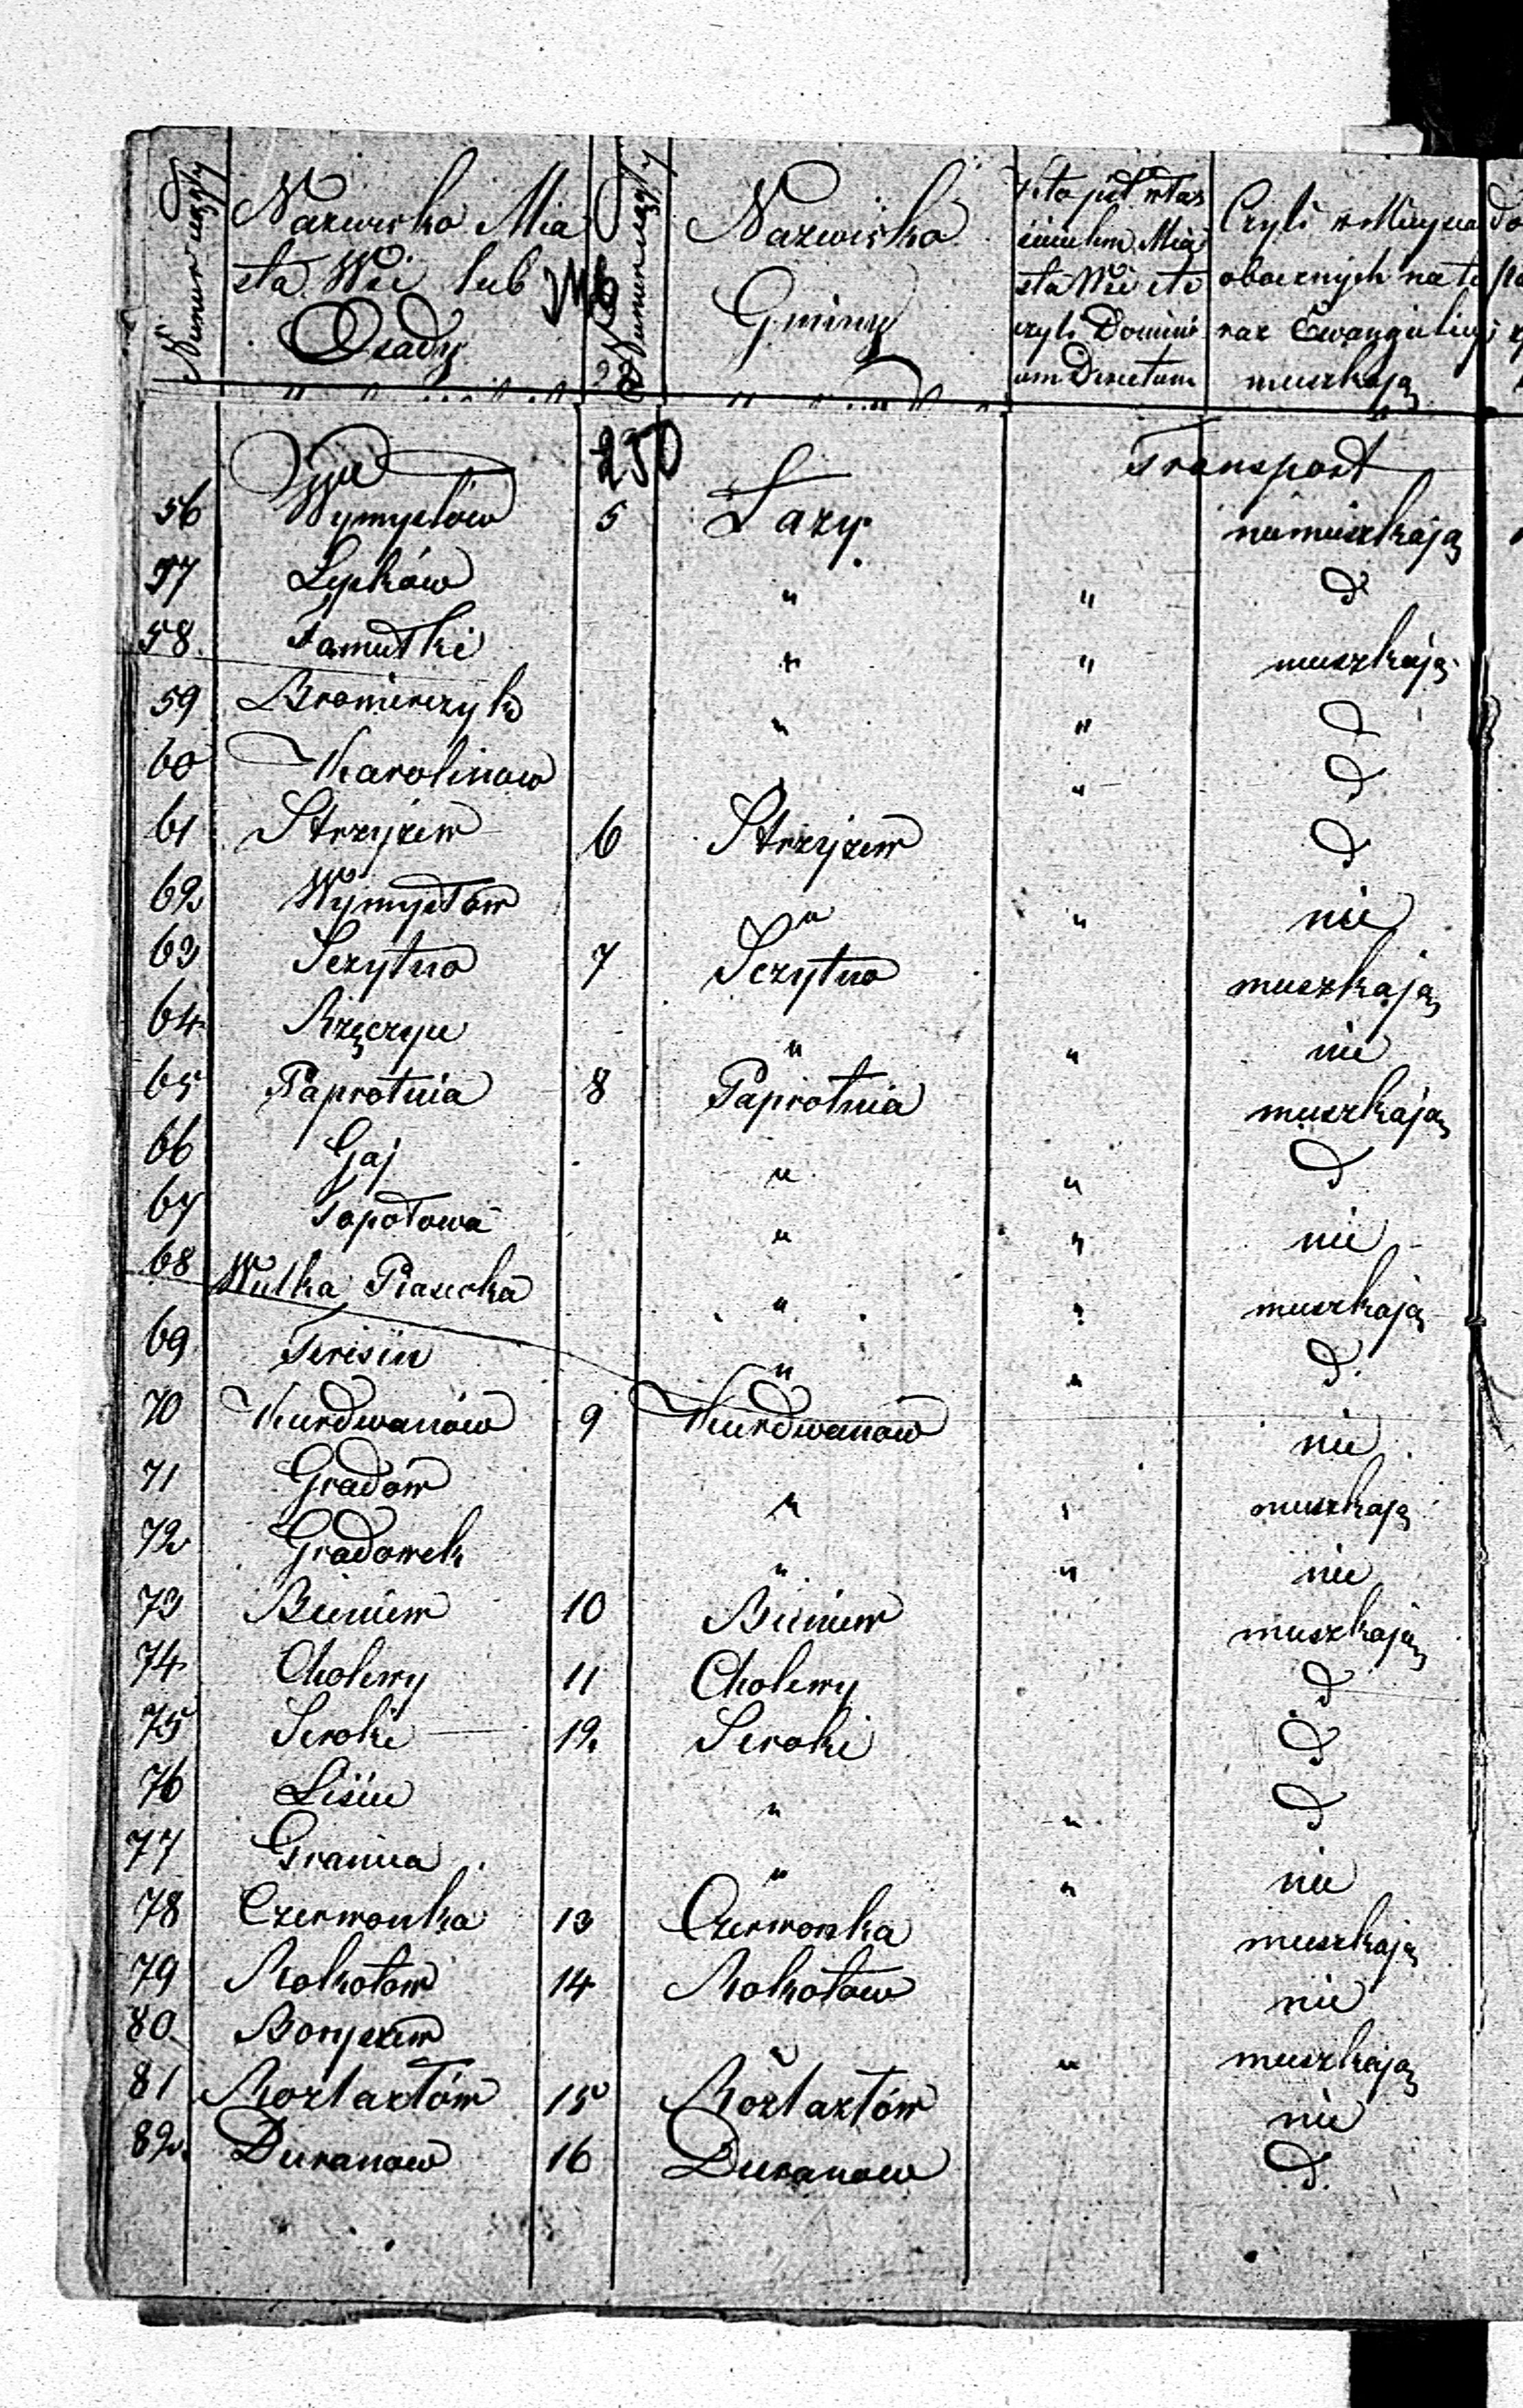 Numer ciągły
Nazwisko Mia
sta Wsi lub
Osady
Numer ciągły
Nazwisko
Gminy
Kto jest włas
cicielem Mia
sta Wsi etc
czyli Domini
um Directum
Czyli w Miejsca
obocznych na te
raz Ewangielicy
mieszkają
250
Transport
56 Wymysłow 5 Łazy niemieszkają
57 Łypków " " d
58. Famułki " " mieszkają
59 Bromierzyk " " d
60 Karolinow " " d
61 Strzyżew 6 Strzyżew d
62 Wymysłow " " nie
63 Sczytno 7 Sczytno mieszkają
64 Rzęczyce " " nie
65 Paprotnia 8 Paprotnia mieszkają
66 Gaj " " d
67 Topołowa " " nie
68 Wulka Piasecka " " mieszkają
69 Teresin " " d
70 Kurdwanów 9 Kurdwanow nie
71 Gradow " " mieszkają
72 Gradowek " " nie
73 Bieniew 10 Bieniew mieszkają
74 Cholewy 11 Cholewy d
75 Seroki 12 Seroki d
76 Lisice " " d
77 Granica " " nie
78 Czerwonka 13 Czerwonka mieszkają
79 Rokotow 14 Rokotow nie
80 Boryszew " " mieszkają
81 Rozłazłów 15 Rozłazłów nie
82 Duranow 16 Duranow d.